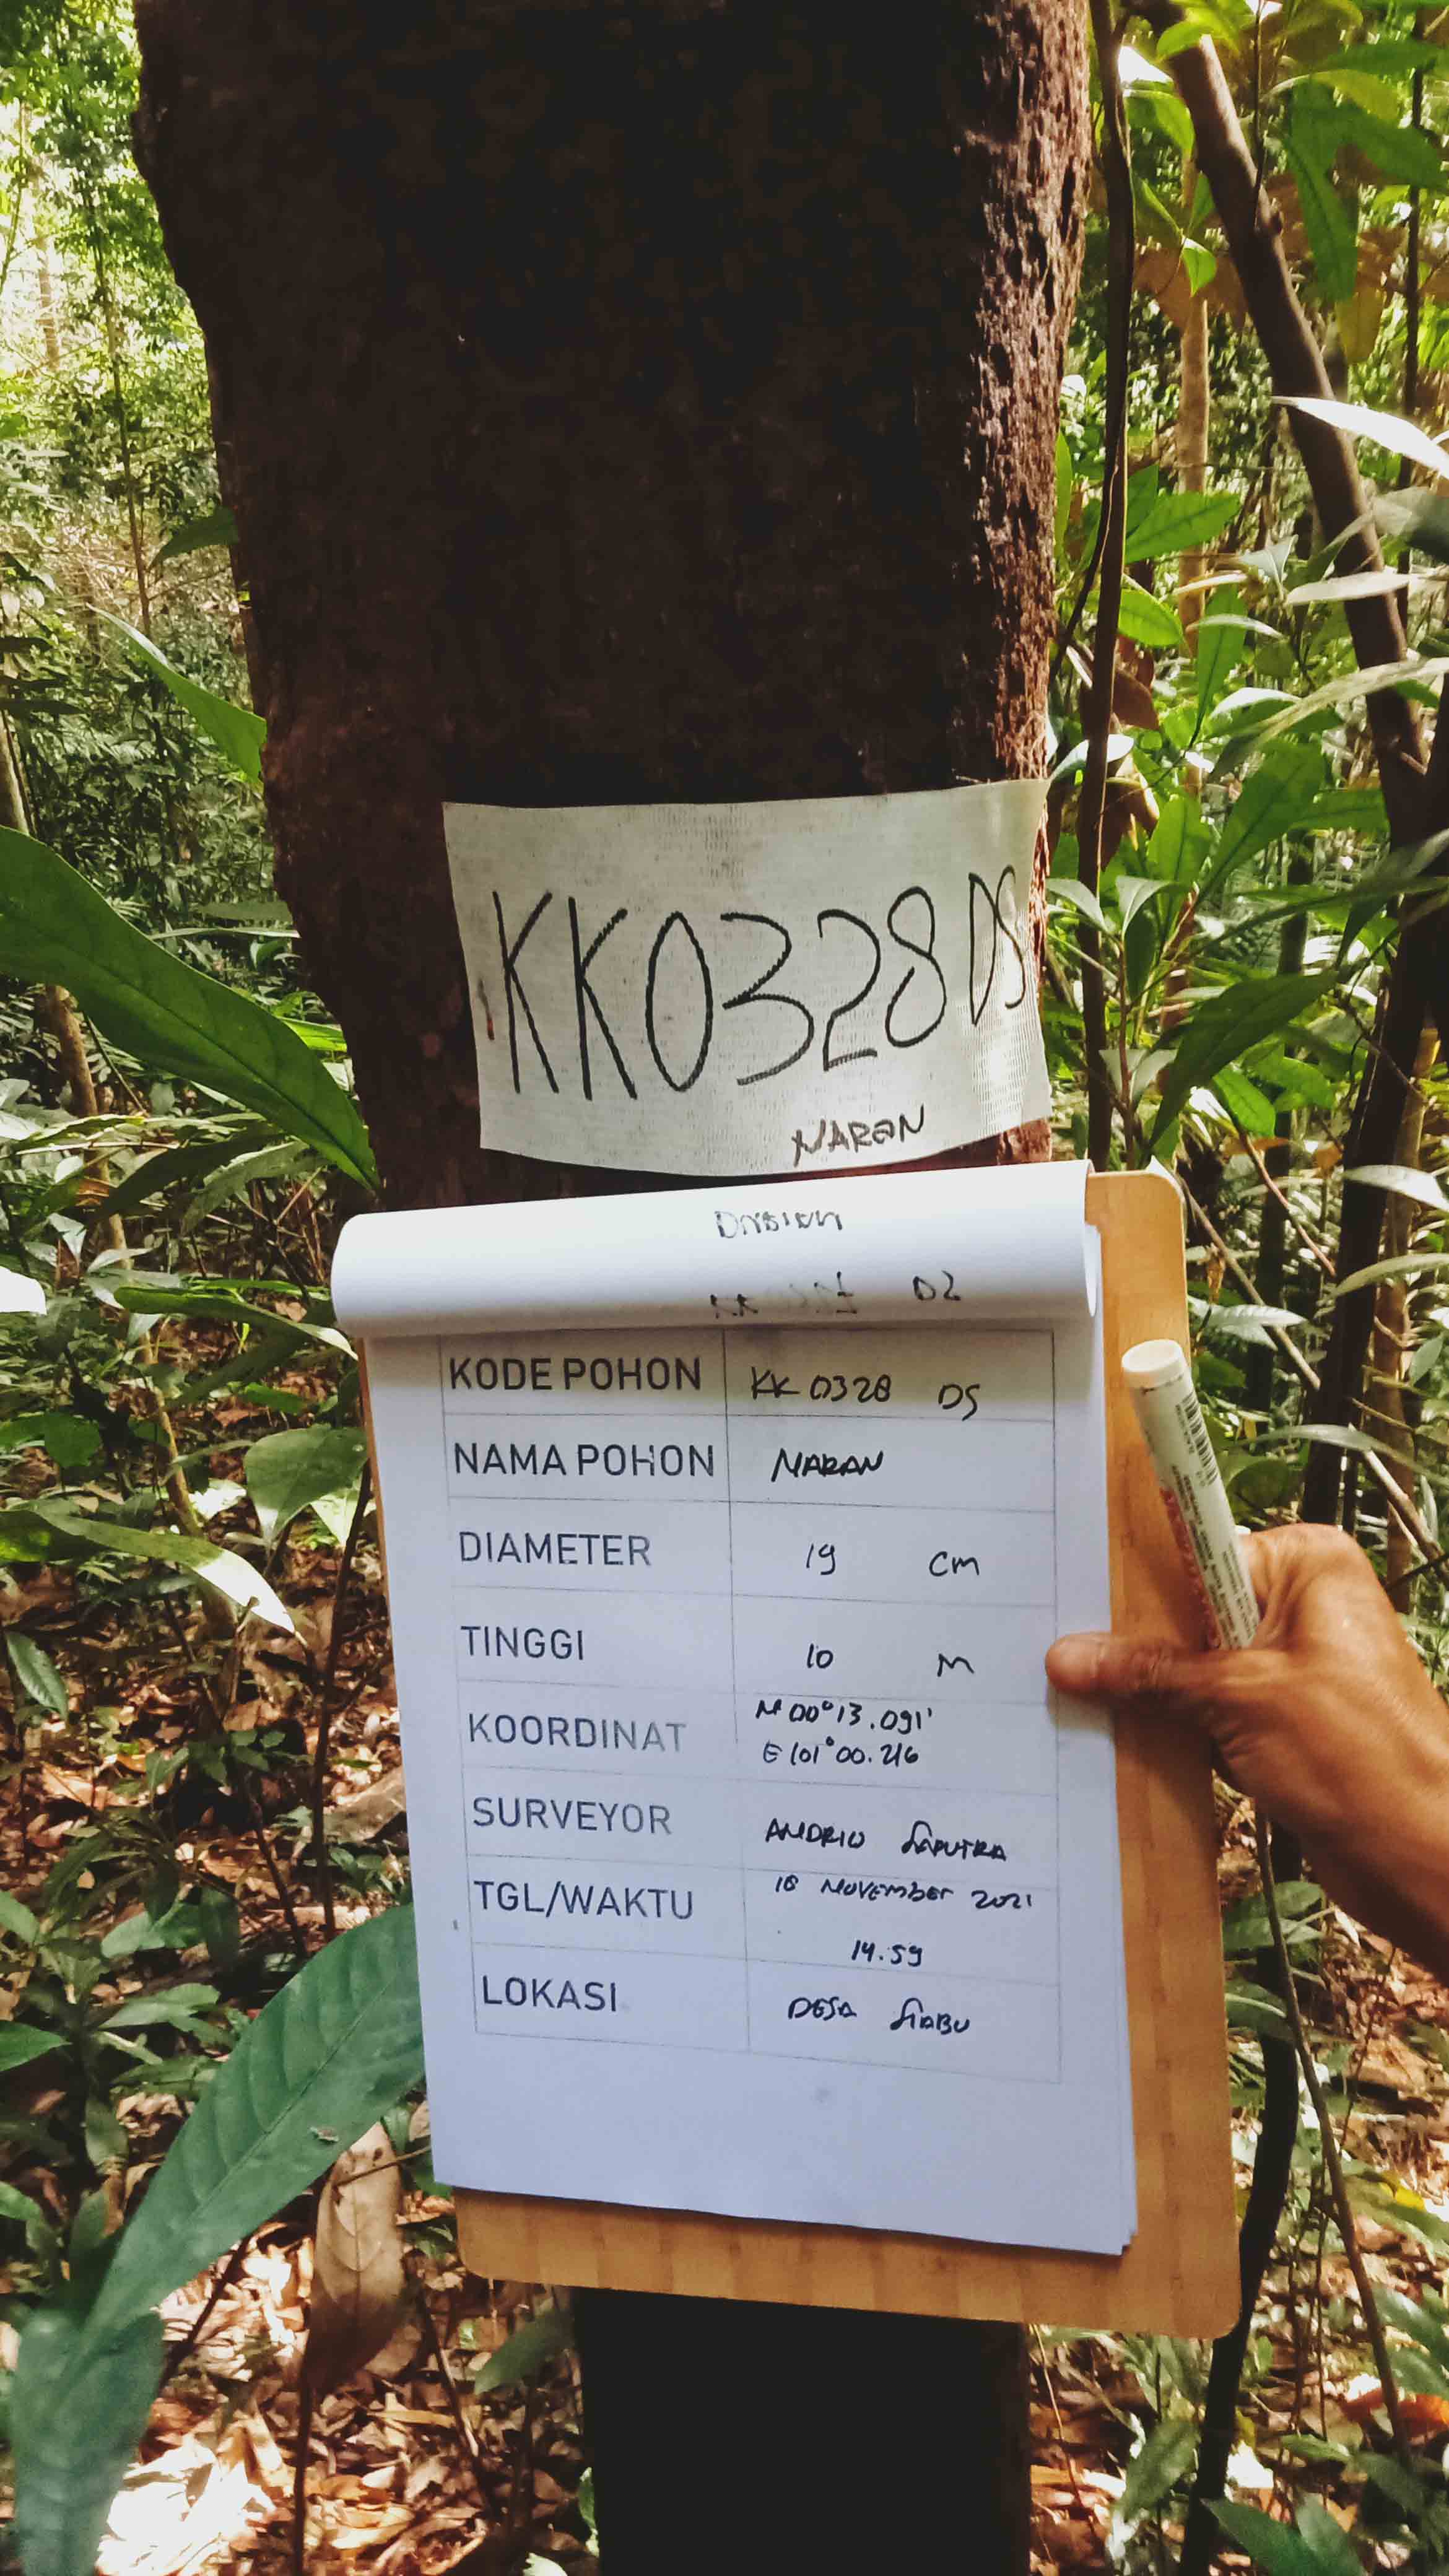 KK0328 DS
NARAN
D2
KODE POHON KK 0328 DS
NAMA POHON NARAN
DIAMETER 19 cm
TINGGI 10 M
KOORDINAT N 00°13.091'
E 101°00.216
SURVEYOR ANDRIO SAPUTRA
TGL/WAKTU 18 NOVEMBER 2021
14.59
LOKASI DESA SIABU